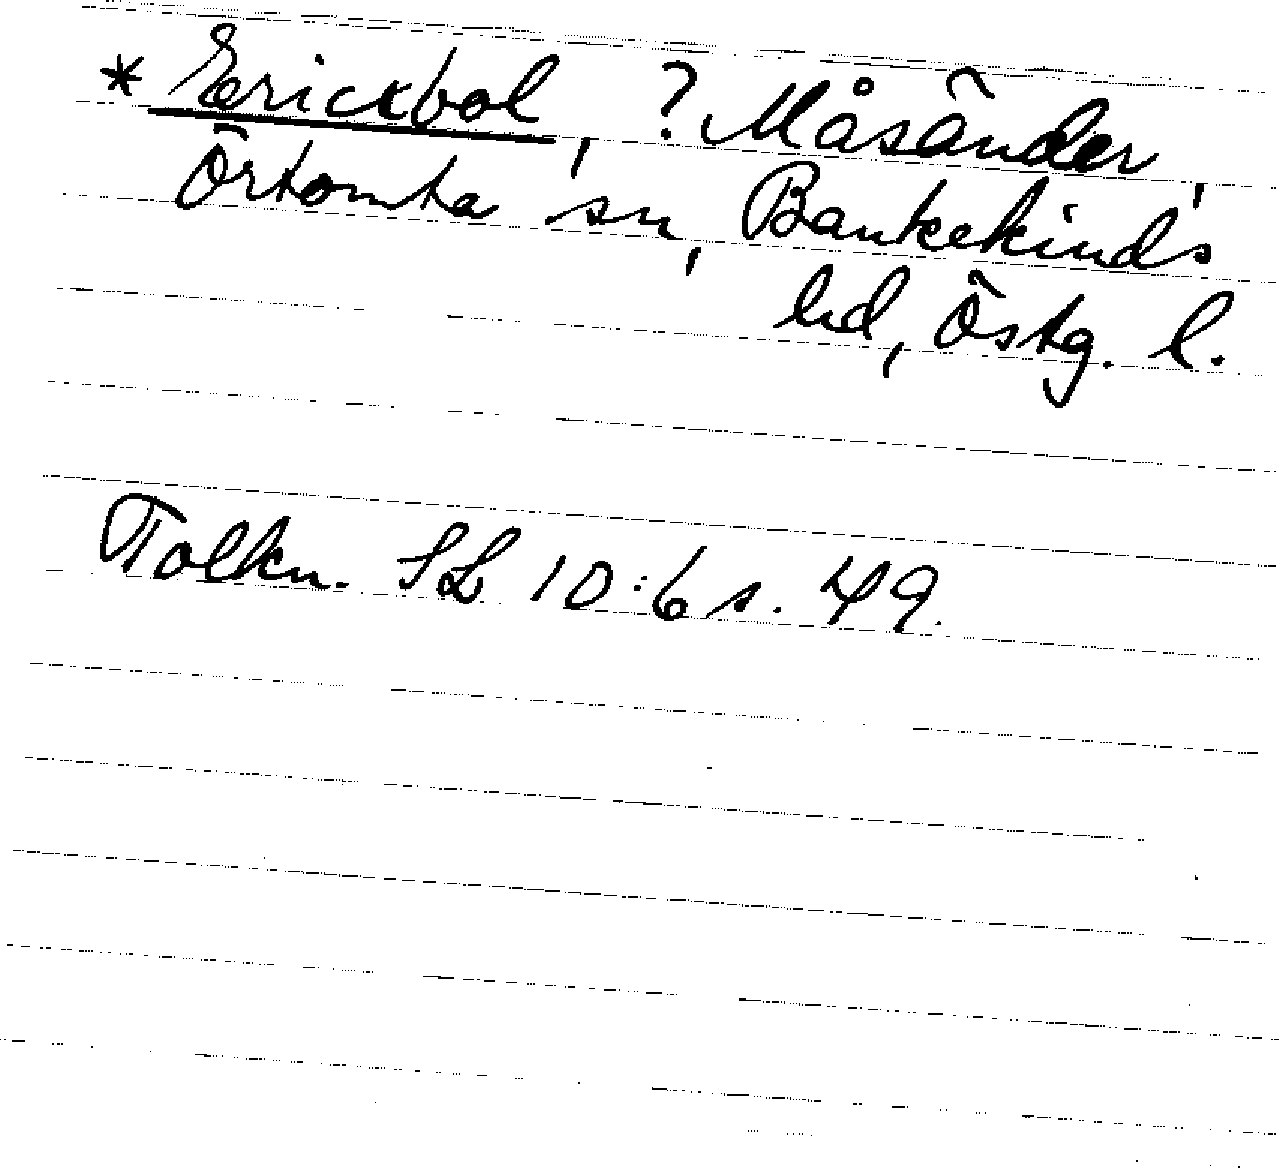 * Erickbol, ? Måsänder,
Örtomta sn, Bankekinds
hd, Östg. l.
Tolkn. SL 10:6 s. 49.